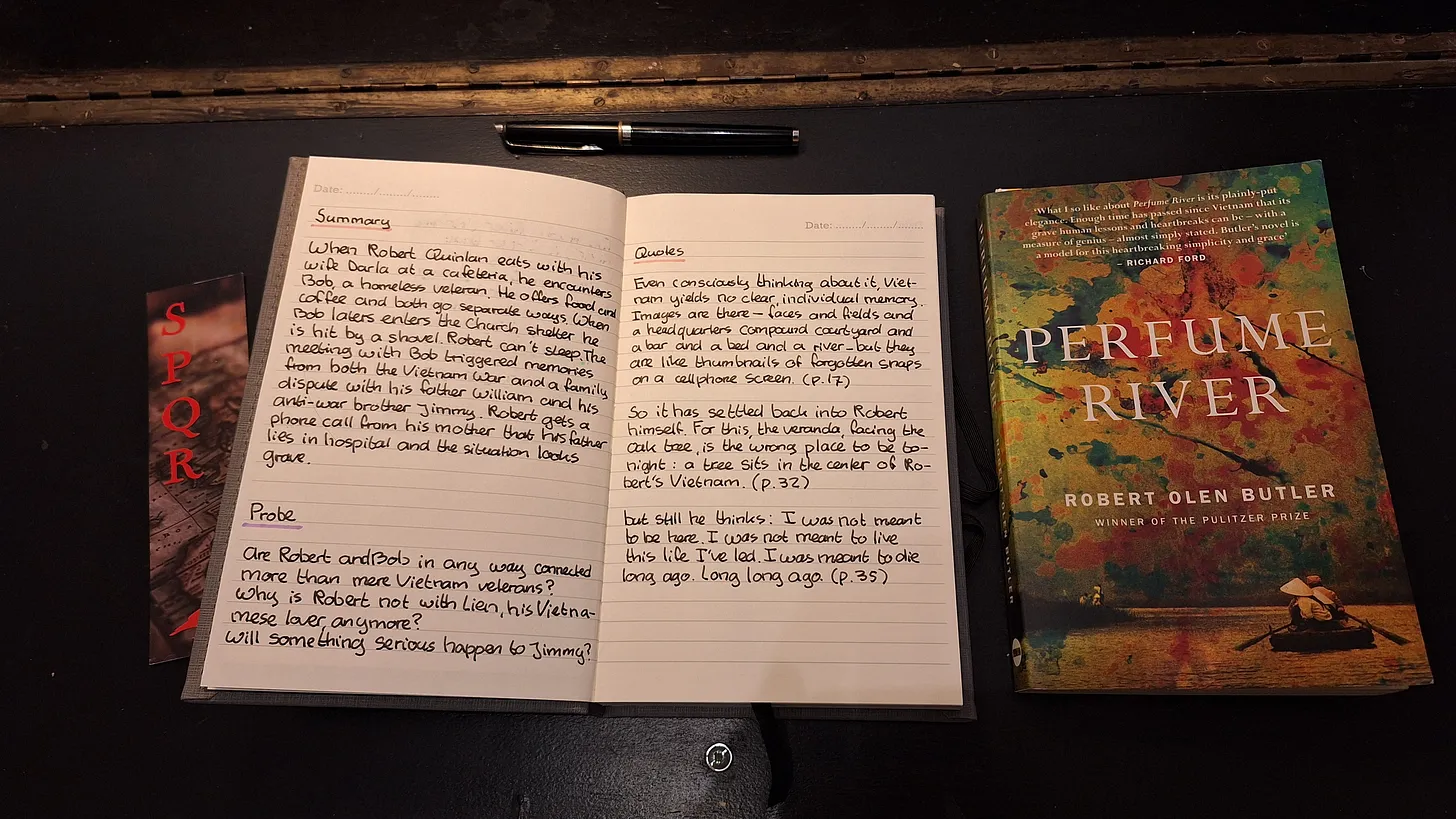 S
P
Q
R
Date: ......../......../........
Summary
When Robert Quinlan eats with his
wife Darla at a cafeteria, he encounters
Bob, a homeless veteran. He offers food and
coffee and both go separate ways. When
Bob laters enters the Church shelter he
is hit by a shovel. Robert can't sleep. The
meeting with Bob triggered memories
from both the Vietnam War and a family
dispute with his father William and his
anti-war brother Jimmy. Robert gets a
phone call from his mother that his father
lies in hospital and the situation looks
grave.
Probe
Are Robert and Bob in any way connected
more than mere Vietnam velerans?
Why is Robert not with Lien, his Vietna-
mese lover, anymore?
Will something serious happen to Jimmy?
Date: ......../......../........
Quotes
Even consciously thinking about it, Viet-
nam yields no clear, individual memory.
Images are there – faces and fields and
a headquarters compound courtyard and
a bar and a bed and a river – but they
are like thumbnails of forgotten snaps
on a cellphone screen. (p.17)
So it has settled back into Robert
himself. For this, the veranda, facing the
oak tree, is the wrong place to be to-
night : a tree sits in the center of Ro-
bert's Vietnam. (p.32)
but still he thinks: I was not meant
to be here. I was not meant to live
this life I've led. I was meant to die
long ago. Long long ago. (p.35)
'What I so like about Perfume River is its plainly-put
elegance. Enough time has passed since Vietnam that its
grave human lessons and heartbreaks can be – with a
measure of genius – almost simply stated. Butler's novel is
a model for this heartbreaking simplicity and grace'
– RICHARD FORD
PERFUME
RIVER
ROBERT OLEN BUTLER
WINNER OF THE PULITZER PRIZE